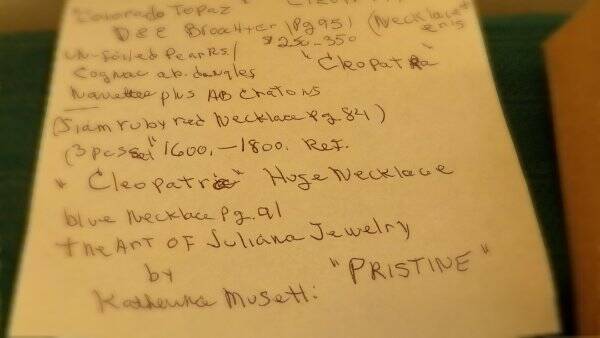 Colorado Topaz
D&E Broach + er (Pg 95) (Necklace +
$250-350 er is
un-foiled Pears /
"Cleopatra"
Cognac ab. dangles
Navettee plus AB cratons
(Siam ruby red Necklace Pg. 84)
(3 pcs set 1600.-1800. Ref.
"Cleopatra" Huge Necklace
blue Necklace Pg. 91
the Art OF Juliana Jewelry
by "PRISTINE"
Katherina Musetti